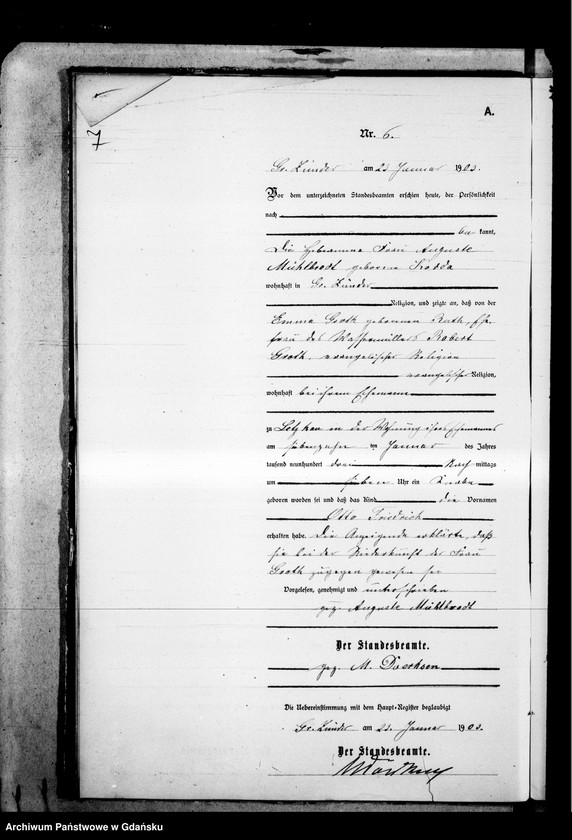 A.
7
Nr. 6.
Gr. Zünder am 23 Januar 1903.
Vor dem unterzeichneten Standesbeamten erschien heute, der Persönlichkeit
nach
be kannt,
Die Hebeamme Frau Auguste
Mühlbrodt geborene
wohnhaft in Gr. Zünder
Religion, und zeigte an, daß von der
Emma Groth geborenen Rath, Ehe-
frau des Wassermüllers Robert
Groth, evangelischer Religion
evangelischer Religion,
wohnhaft bei ihrem Ehemanne
zu Letzkau in der Wohnung ihres Ehemannes
am siebenzehn ten Januar des Jahres
tausend neunhundert drei Nach mittags
um sieben Uhr ein Knabe
geboren worden sei und daß das Kind die Vornamen
Otto Friedrich
erhalten habe. Die Anzeigende erklärte, daß
sie bei der Niederkunft der Frau
Groth zugegen gewesen sei
Vorgelesen, genehmigt und unterschrieben
gez. Auguste Mühlbrodt
Der Standesbeamte.
gez. M. Doerksen
Die Uebereinstimmung mit dem Haupt-Register beglaubigt
Gr. Zünder am 23. Januar 1903.
Der Standesbeamte.
Archiwum Państwowe w Gdańsku